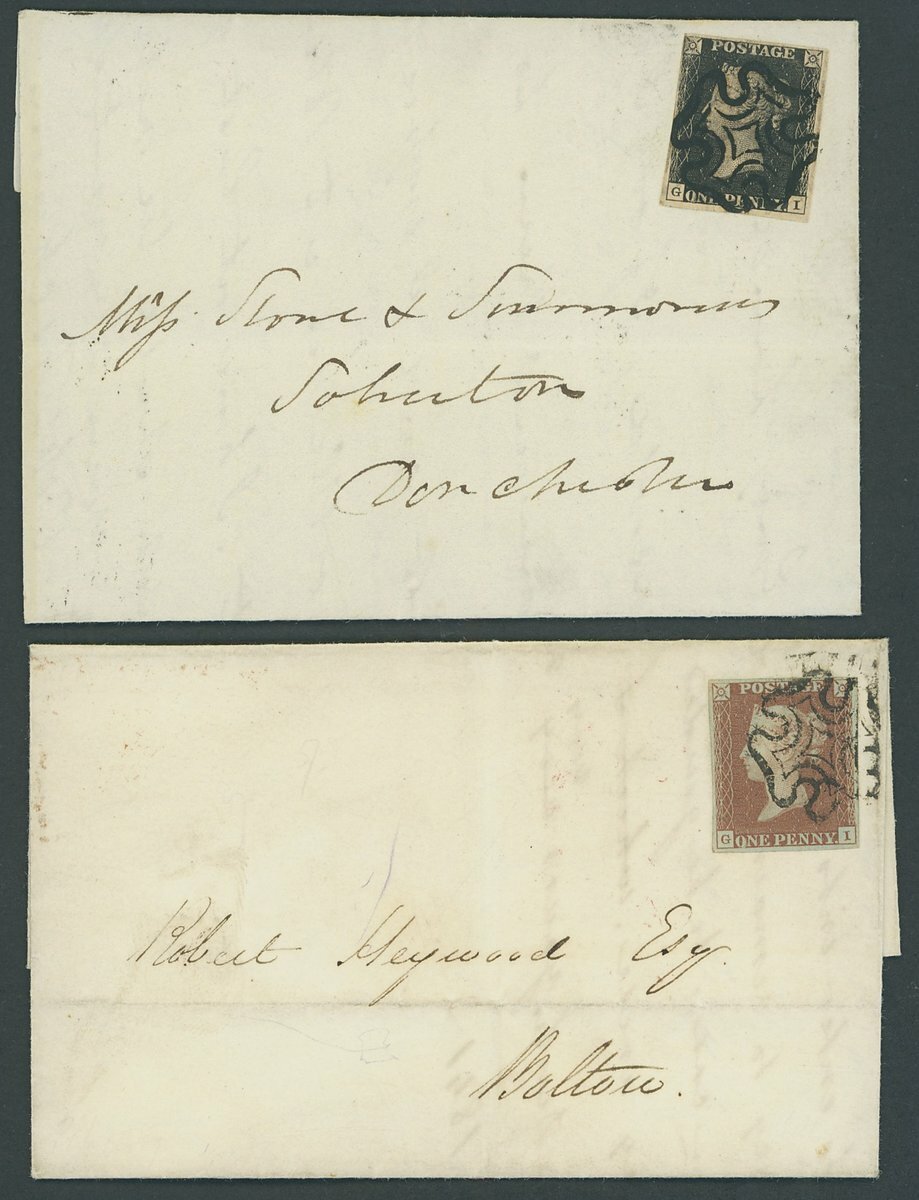 POSTAGE
G ONE PENNY. I
Miss Stone & Simmonds
Solicitors
Dorchester
POSTAGE
G ONE PENNY. I
Robert Heywood Esq.
Bolton.